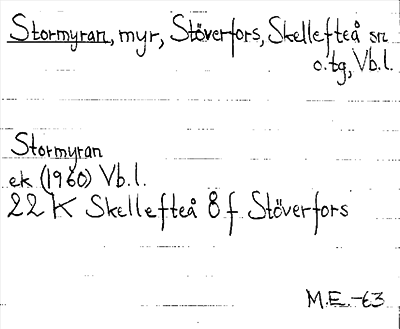 Stormyran, myr, Stöverfors, Skellefteå sn
o. tg, Vb.l.
Stormyran
ek (1960) Vb.l.
22 K Skellefteå 8 f Stöverfors
M.E. -63